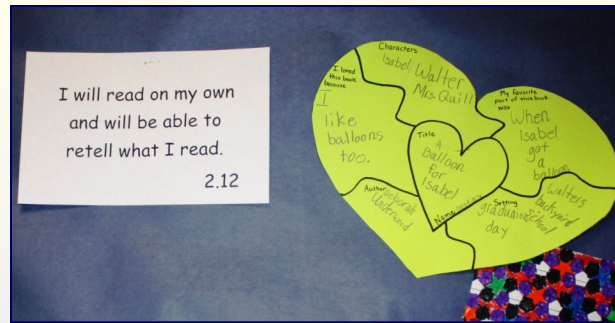 I will read on my own
and will be able to
retell what I read.
2.12
Characters
Isabel, Walter
Mrs. Quill
I loved
this book
because
I
like
balloons
too.
My favorite
part of this book
was
When
Isabel
got
a
balloon
Title
A
Balloon
for
Isabel
Author
Deborah
Underwood
Name
Setting
Walters
backyard
school
graduation
day